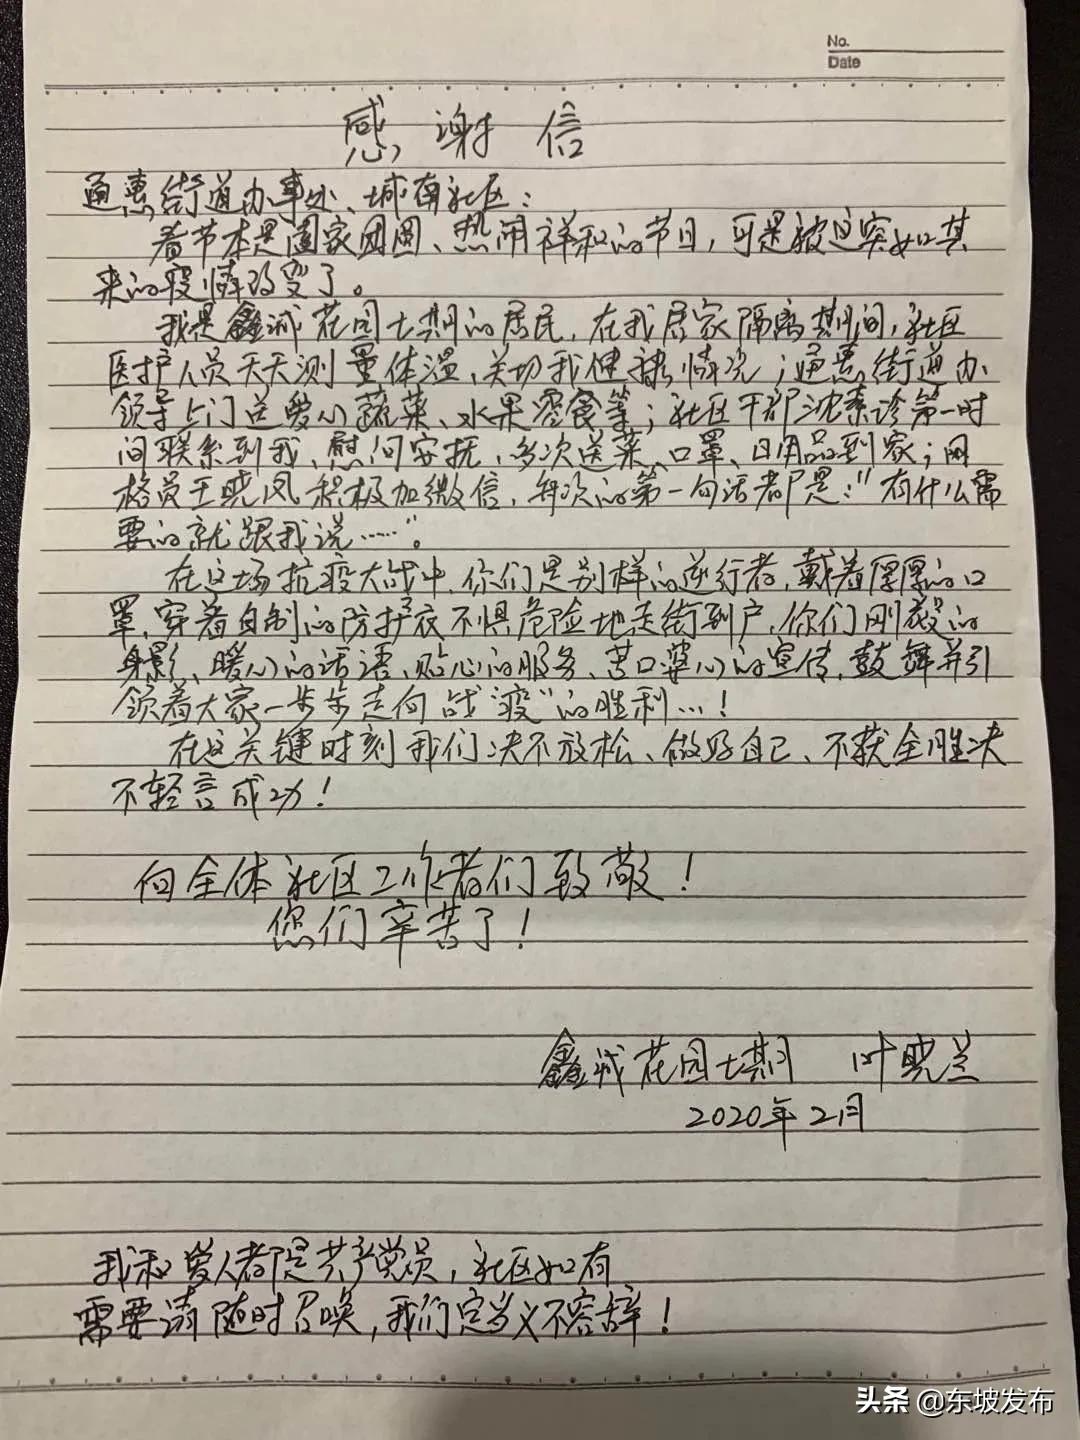 No.
Date
感谢信
通惠街道办事处、城南社区：
春节本是阖家团圆、热闹祥和的节日，可是被这突如其
来的疫情改变了。
我是鑫诚花园七期的居民，在我居家隔离期间，社区
医护人员天天测量体温、关切我健康情况；通惠街道办
领导上门送爱心蔬菜、水果零食等；社区干部沈素诊第一时
间联系到我、慰问安抚、多次送菜、口罩、日用品到家；网
格员王晓凤积极加微信，每次的第一句话都是：“有什么需
要的就跟我说……”。
在这场抗疫大战中，你们是别样的逆行者，戴着厚厚的口
罩、穿着自制的防护衣不惧危险地走街到户，你们刚毅的
身影、暖心的话语、贴心的服务、苦口婆心的宣传，鼓舞并引
领着大家一步步走向战“疫”的胜利…！
在这关键时刻我们决不放松、做好自己、不获全胜决
不轻言成功！
向全体社区工作者们致敬！
您们辛苦了！
鑫诚花园七期 叶晓兰
2020年2月
我和爱人都是共产党员，社区如有
需要请随时召唤，我们定当义不容辞！
头条 @东坡发布